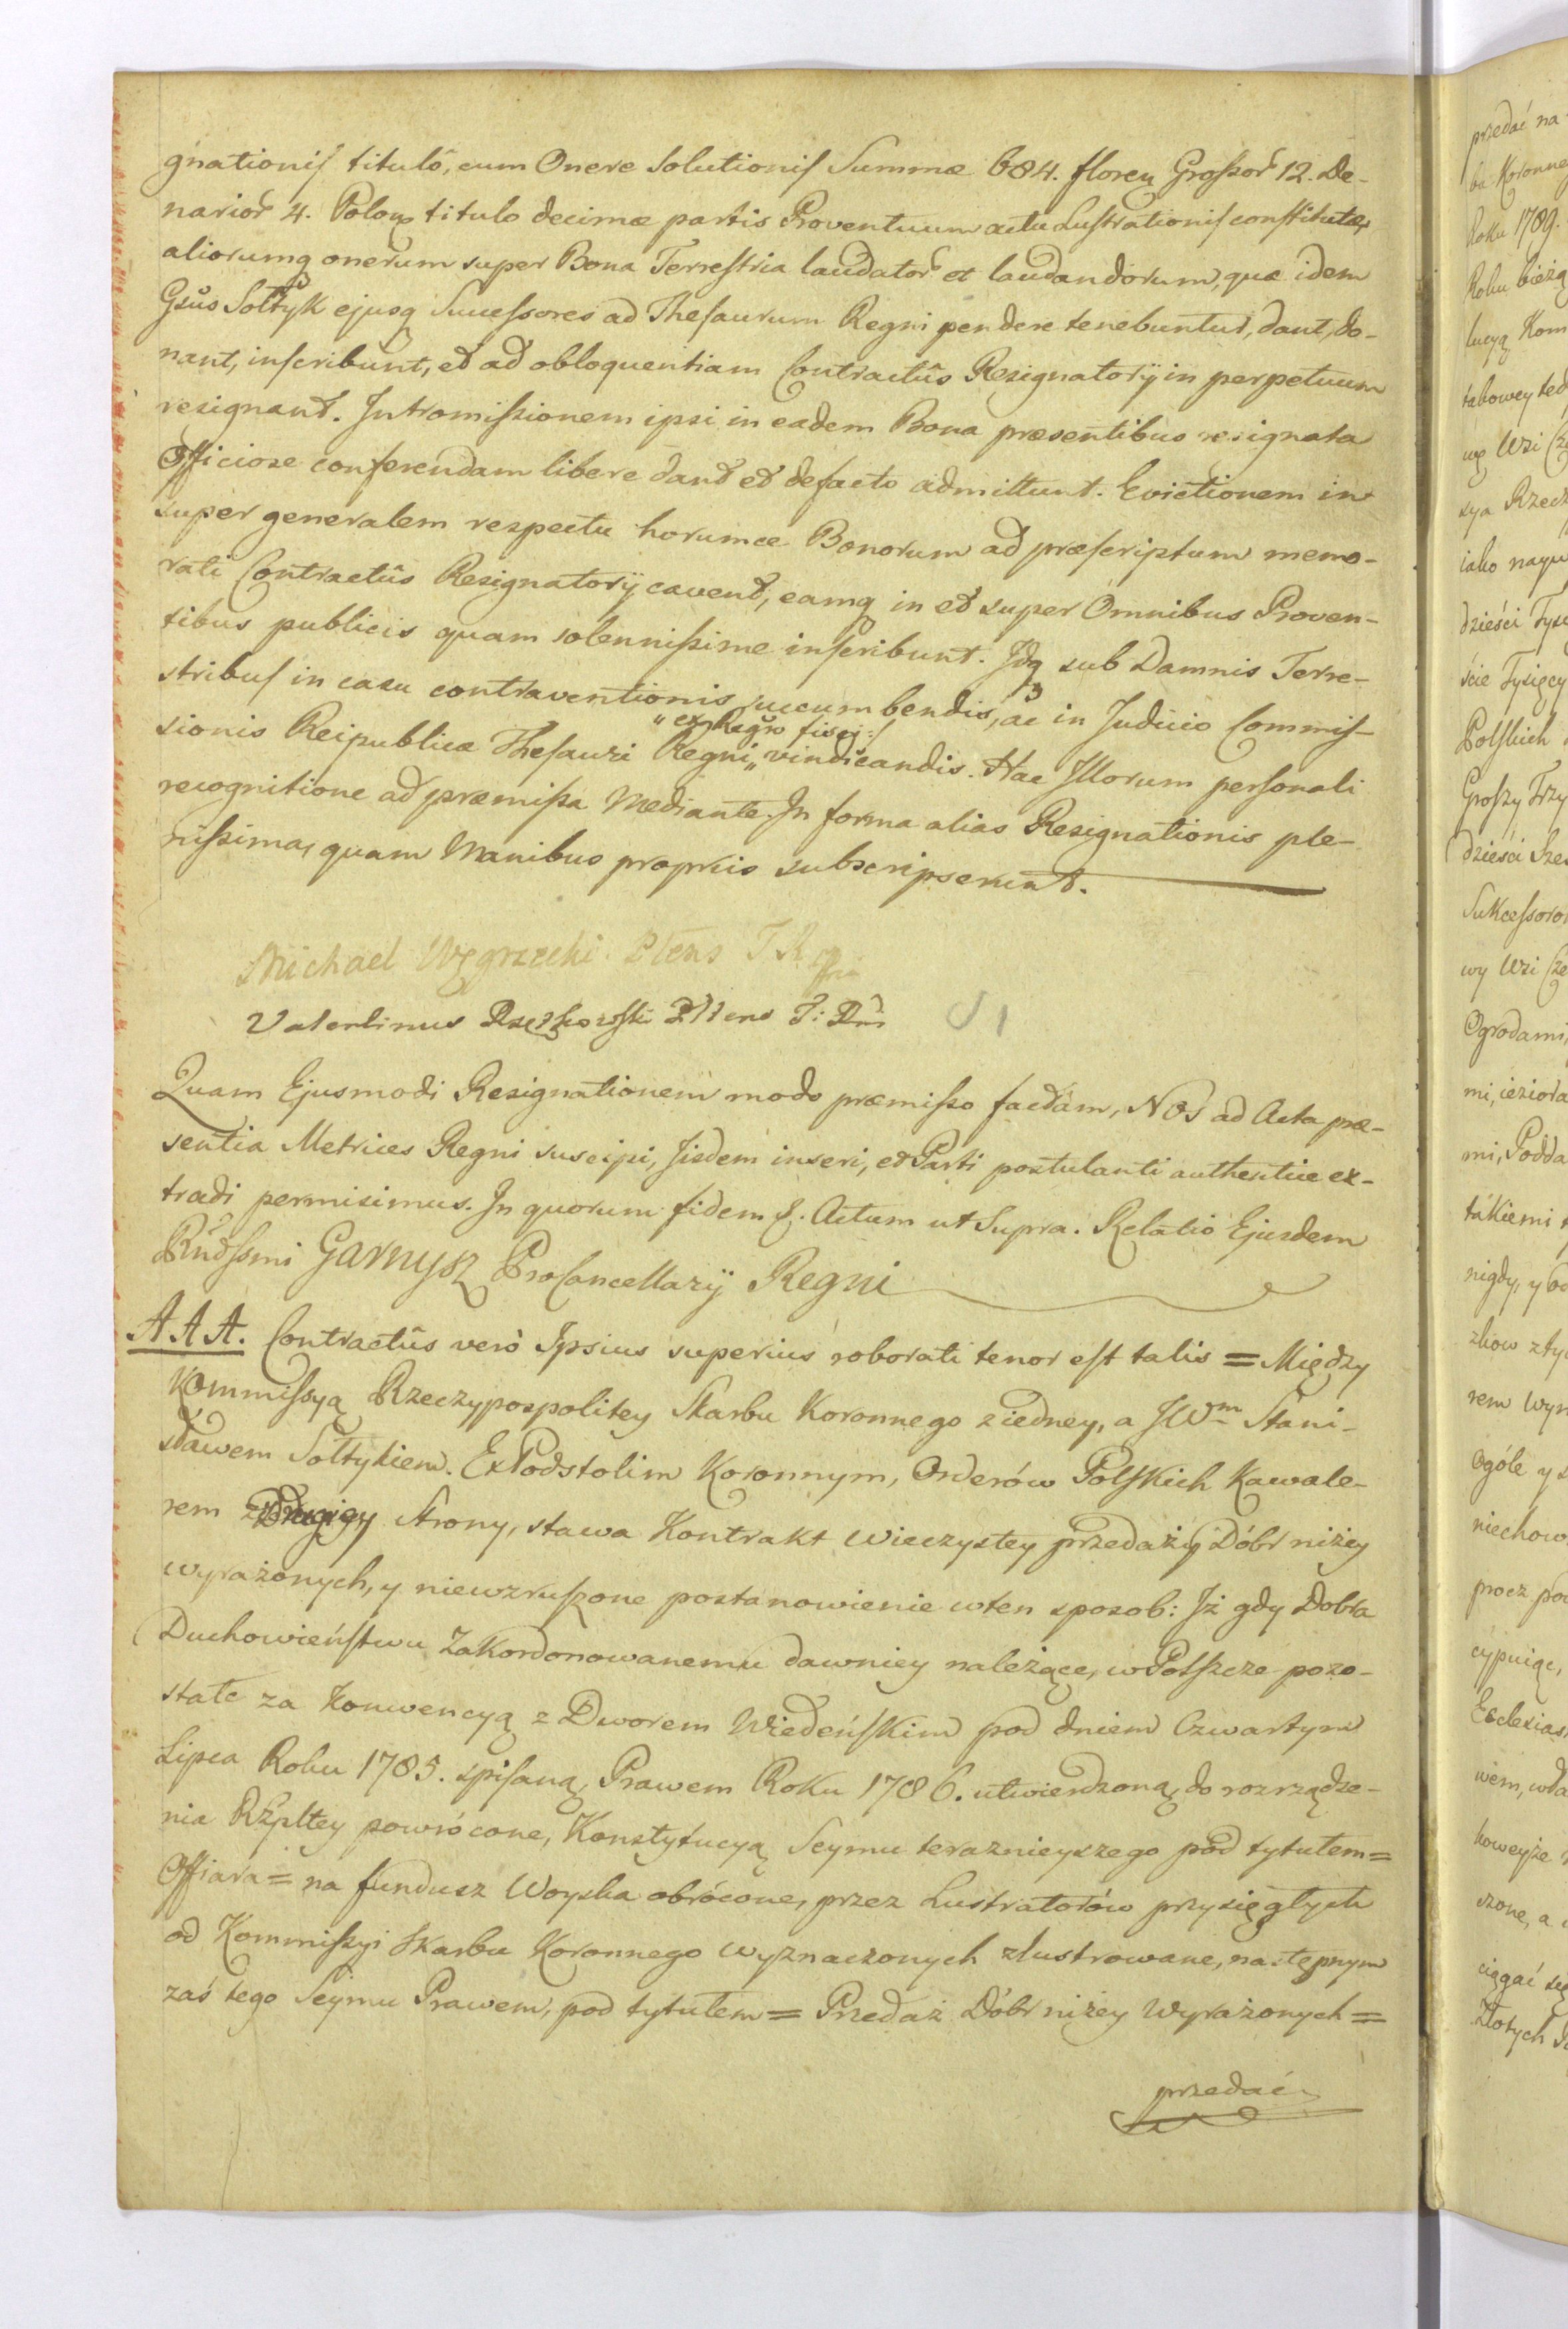 gnationis titulô, cum Onere Solutionis Summæ 684. floren Großor 12. De-
narior 4. Polon titulo decimæ partis Proventuum actu Lustrationis constitutæ,
aliorumq onerum super Bona Terrestria laudator et laudandorum, quæ idem
Gsus Sołtyk ejusq Successores ad Thesaurum Regni pendere tenebuntur, dant, do-
nant, inscribunt, et ad obloquentiam Contractûs Resignatorij in perpetuum
resignant. Intromissionem ipsi in eadem Bona præsentibus resignata
Officiose conferendam libere dant et defacto admittunt. Evictionem in
super generalem respectu horumce Bonorum ad præscriptum memo-
rati Contractûs Resignatorij cavent, eamq in et super Omnibus Proven-
tibus publicis quam solennissime inscribunt. Idq sub Damnis Terre-
stribus in casu contraventionis succumbendis, ac in Judicio Commis-
"ex Regro fisci:/
sionis Reipublicæ Thesauri Regni" vindicandis. Hac Illorum personali
recognitione ad præmissa Mediante. In forma alias Resignationis ple-
nissima, quam Manibus propriis subscripserunt.
Michael Węgrzecki Plens T. R
Valentinus Rzęzkowski Pltens T:
Quam Ejusmodi Resignationem modo præmisso factam, NOS ad Acta præ-
sentia Metrices Regni suscipi, Iisdem inseri, et Parti postulanti authentice ex-
tradi permisimus. In quorum fidem &. Actum ut Supra. Relatio Ejusdem
Rndssmi Garnysz ProCancellarij Regni
A A A. Contractûs verò Ipsius superius roborati tenor est talis = Między
Kommissyą Rzeczypospolitey Skarbu Koronnego z iedney, a JWm Stani-
sławem Sołtykiem. ExPodstolim Koronnym, Orderów Polskich Kawale-
rem z Drugiey Strony, stawa Kontrakt Wieczystey przedaży Dóbr niżey
wyrażonych, y niewzruszone postanowienie w ten sposob: Iż gdy Dobra
Duchowieństwu Zakordonowanemu dawniey należące, w Polszcze pozo-
stałe za Konwencyą z Dworem Wiedeńskim pod dniem Czwartym
Lipca Roku 1785. spisaną, Prawem Roku 1786. utwierdzoną, do rozrządze-
nia Rzpltey powrócone, Konstytucyą Seymu teraznieyszego pod tytułem =
Offiara = na fundusz Woyska obrócone, przez Lustratorów przysięgłych
od Kommissyi Skarbu Koronnego wyznaczonych zlustrowane, następnym
zaś tego Seymu Prawem, pod tytułem = Przedaż Dóbr niżey Wyrażonych =
przedać
przedać na
Koronne
Roku 1789.
Roku bieżą
lucyą Kom
takowey ted
Wsi
sya Rzecz
iako nayw
dzieści Tys
ście Tysięcy
Polskich
Groszy Trzy
dzieści Sze
Sukcessoro
wy Wsi
Ogrodami,
mi, iezior
mi, Podda
takiemi
nigdy, y
rem wyr
Ogóle y
niechow
procz po
cypuiąc,
Ecclesias
wem,
koweyże
szone, a
ciągać się
Złotych